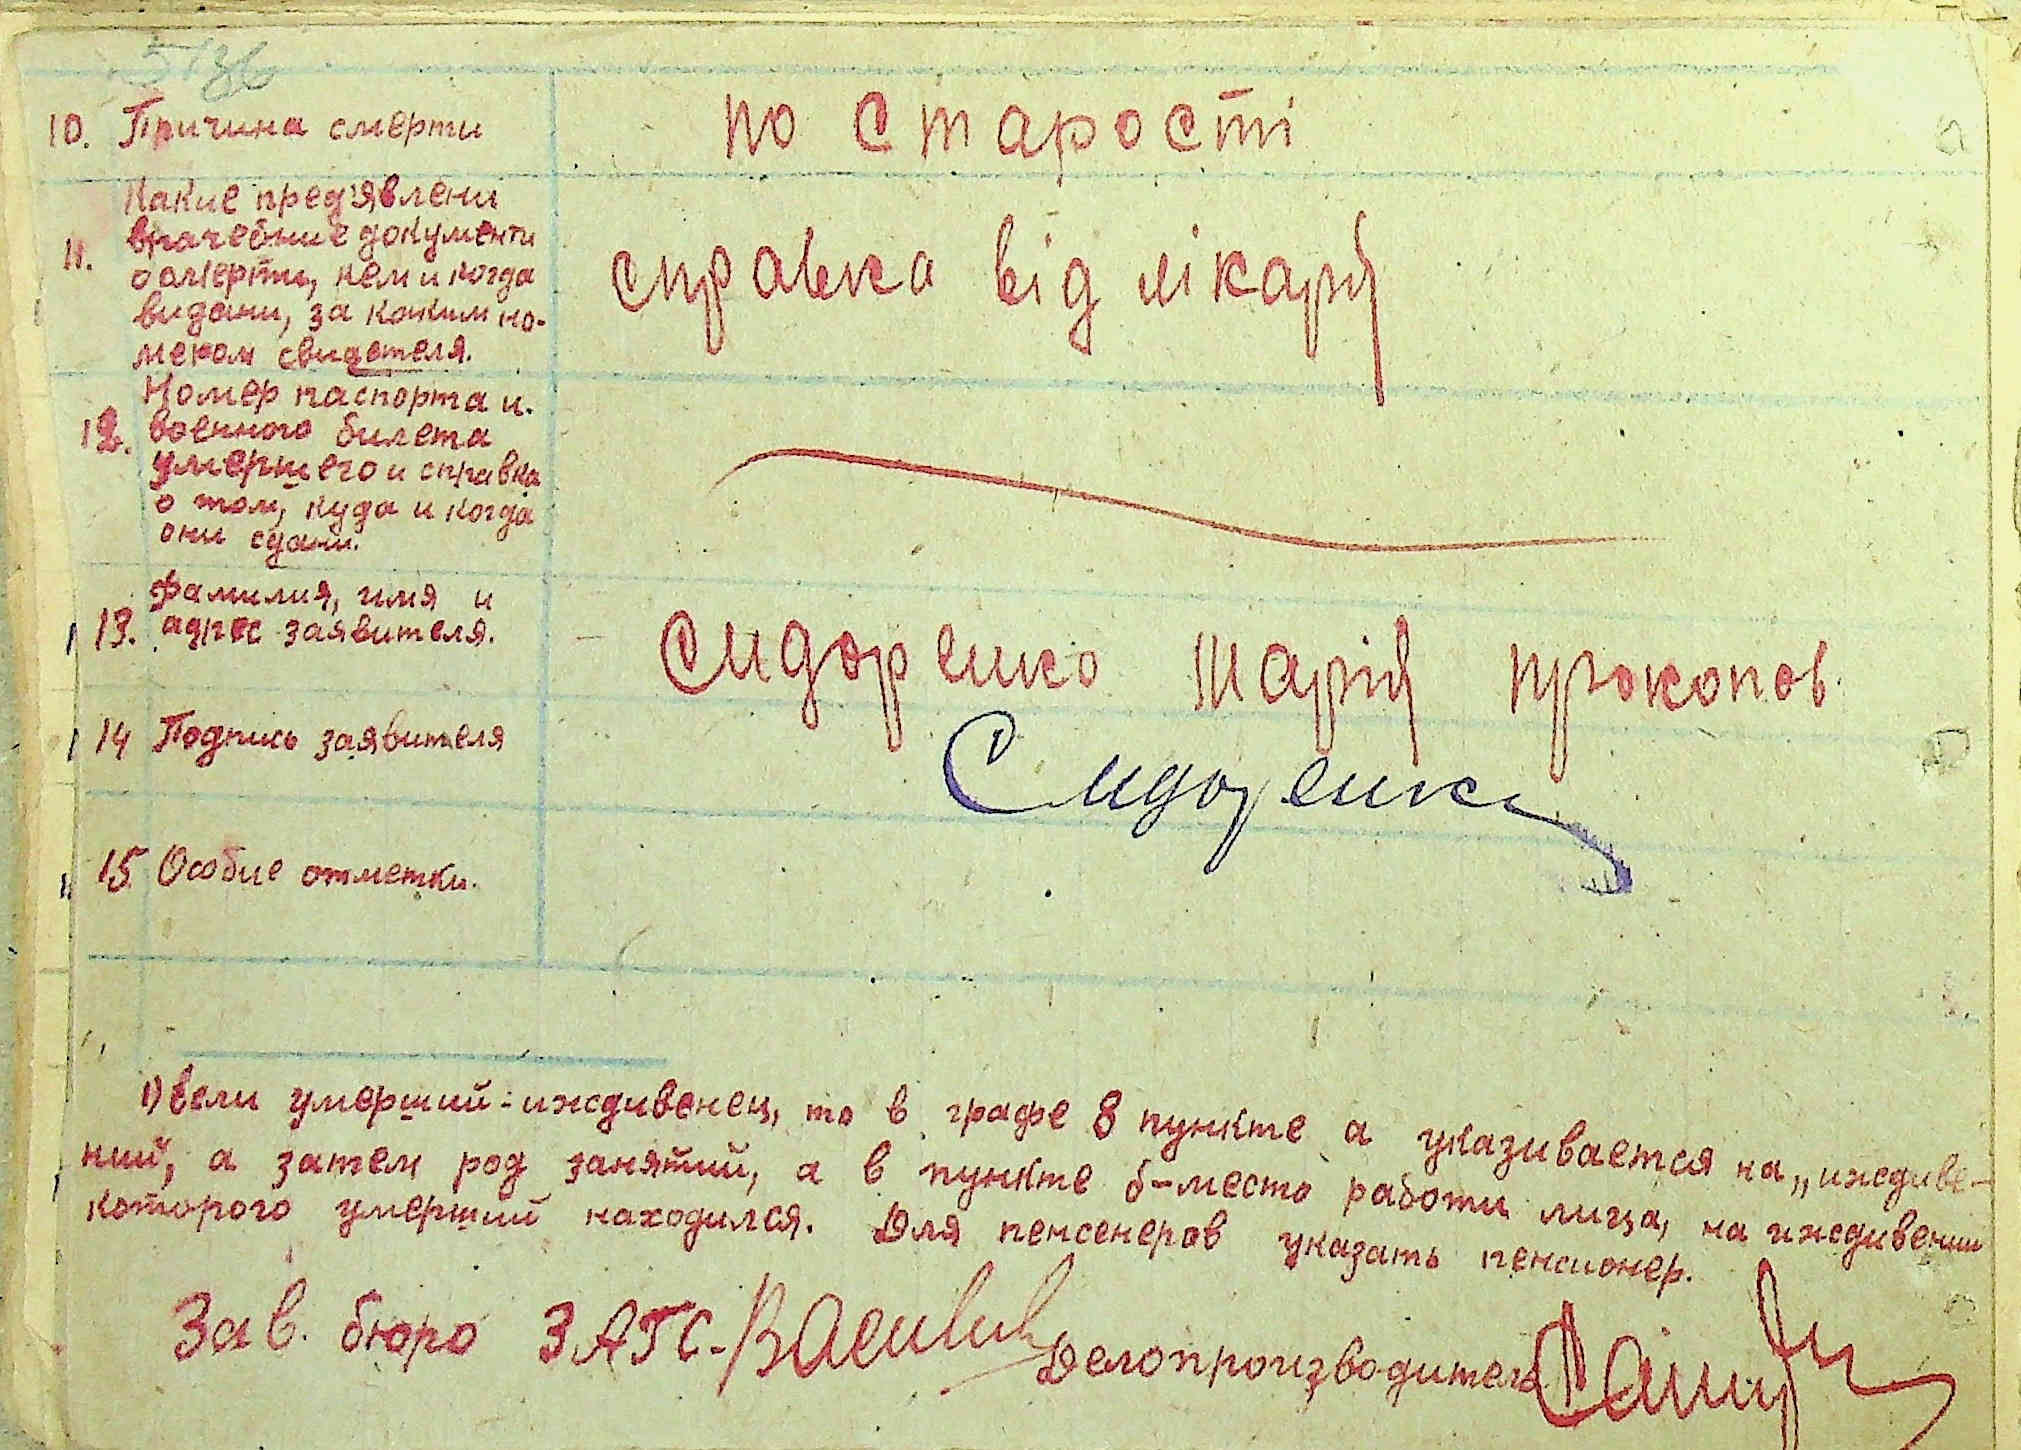 10. Причина смерти
по старості
11. Какие пред'явлени
врачебние документи
о смерти, кем и когда
видани, за каким но-
мером свидетеля.
справка від лікаря
12. Номер паспорта и
военного билета
умершего и справка
о том, куда и когда
они сдани.
13. Фамилия, имя и
адрес заявителя.
Сидоренко Марія Прокопов.
14 Подпись заявителя
Сидоренко
15 Особие отметки.
1) Если умерший-иждивенец, то в графе 8 пункте а указивается на „иждиве-
нии, а затем род занятий, а в пункте б-место работи лица, на иждивении
которого умерший находился. Для пенсенеров указать пенсионер.
Зав. бюро ЗАГС- Делопроизводитель